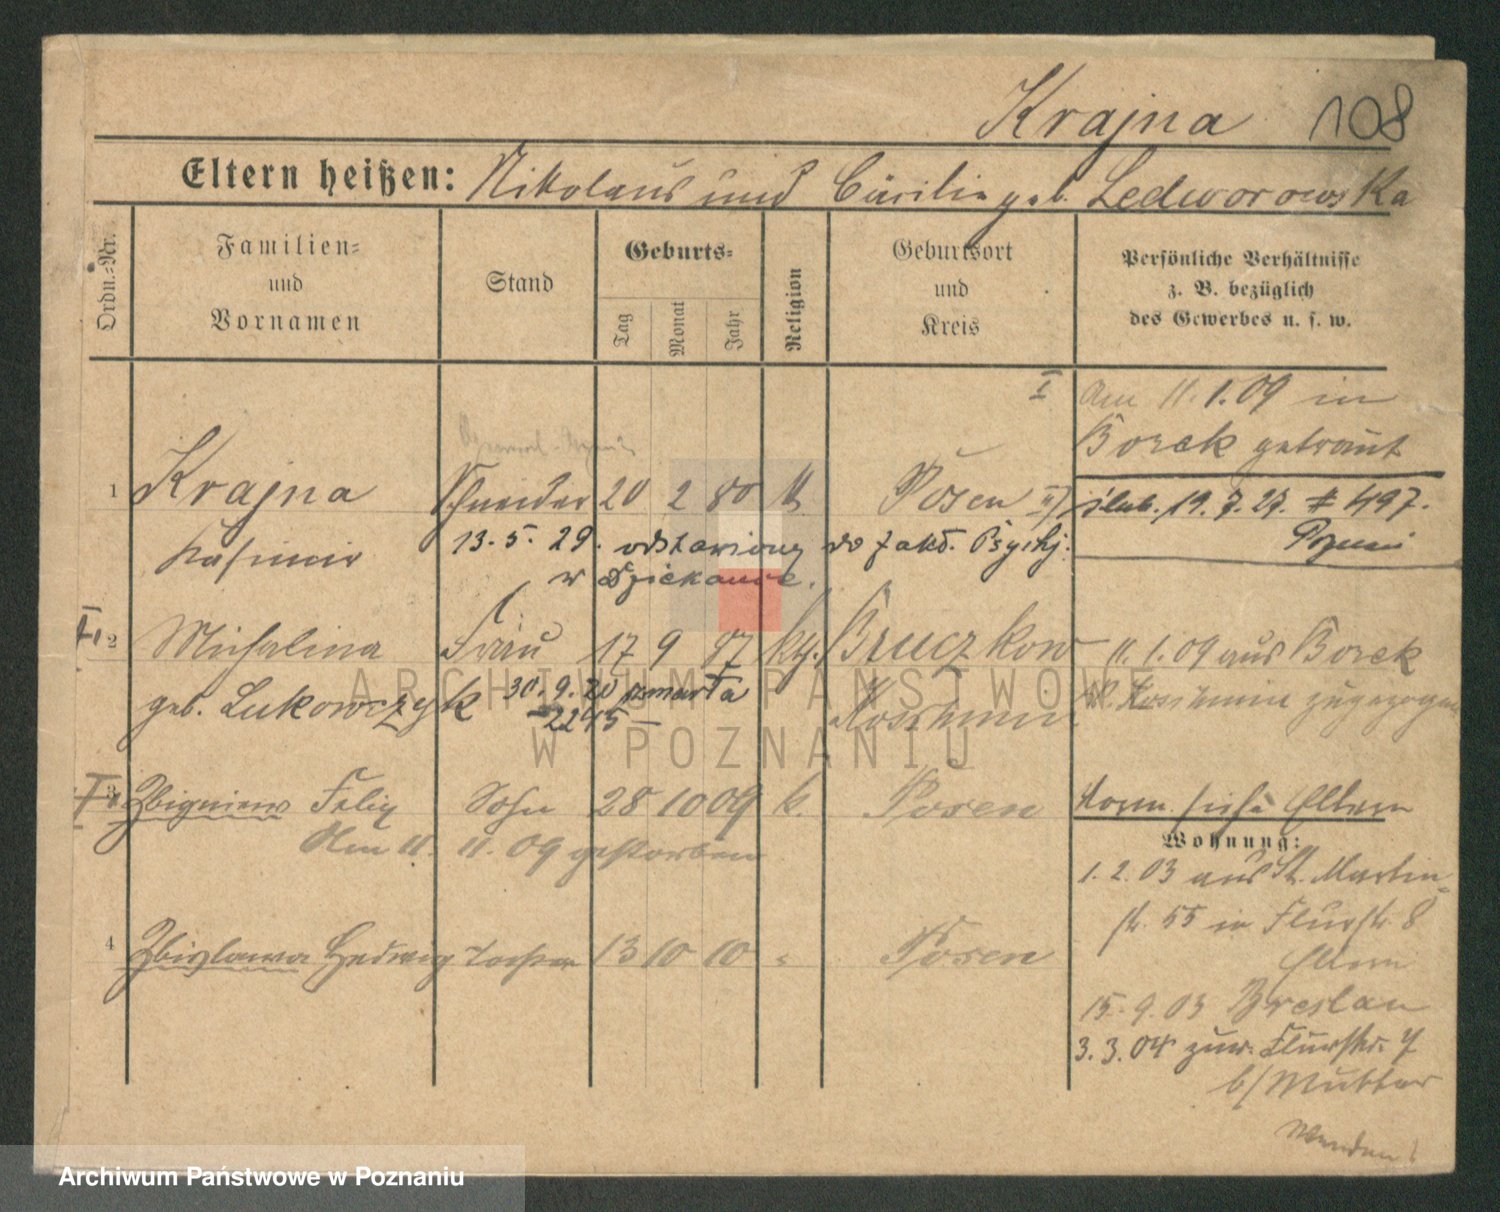 Krajna 108
Eltern heißen: Nikolaus und Cäcilie geb. Ledworowska
Ordn.-Nr.
Familien-
und
Vornamen
Stand
Geburts-
Tag
Monat
Jahr
Religion
Geburtsort
und
Kreis
Persönliche Verhältnisse
z. B. bezüglich
des Gewerbes u. s. w.
I am 11.1.09 in
Borek getraut
1 Krajna Schneider 20 2 80 k Posen II) ślub. 19.7.27. # 497.
Kasimir 13.5.29. odstawiony do Zakł. Psychj. Poznań
w Dziekance.
I, 2 Michalina Frau 17 9 87 kth. Bruczkow 11.1.09 aus Borek
geb. Lukowczyk 30.9.20 zmarła Koschmin K. Koschmin zugezogen
- 2245 -
3 Zbigniew Felix Sohn 28 10 09 k. Posen Korm. siehe Eltern
Am 11. 11. 09 gestorben
Wohnung:
1.2.03 aus St. Martin-
str. 55 in Flurstr. 8
4 Zbislawa Hedwig Tochter 13 10 10 " Posen
Eltern
15.9.03 Breslau
3.3.04 zur. Flurstr. 7
b/Mutter
Wenden!
ARCHIWUM PAŃSTWOWE
W POZNANIU
Archiwum Państwowe w Poznaniu